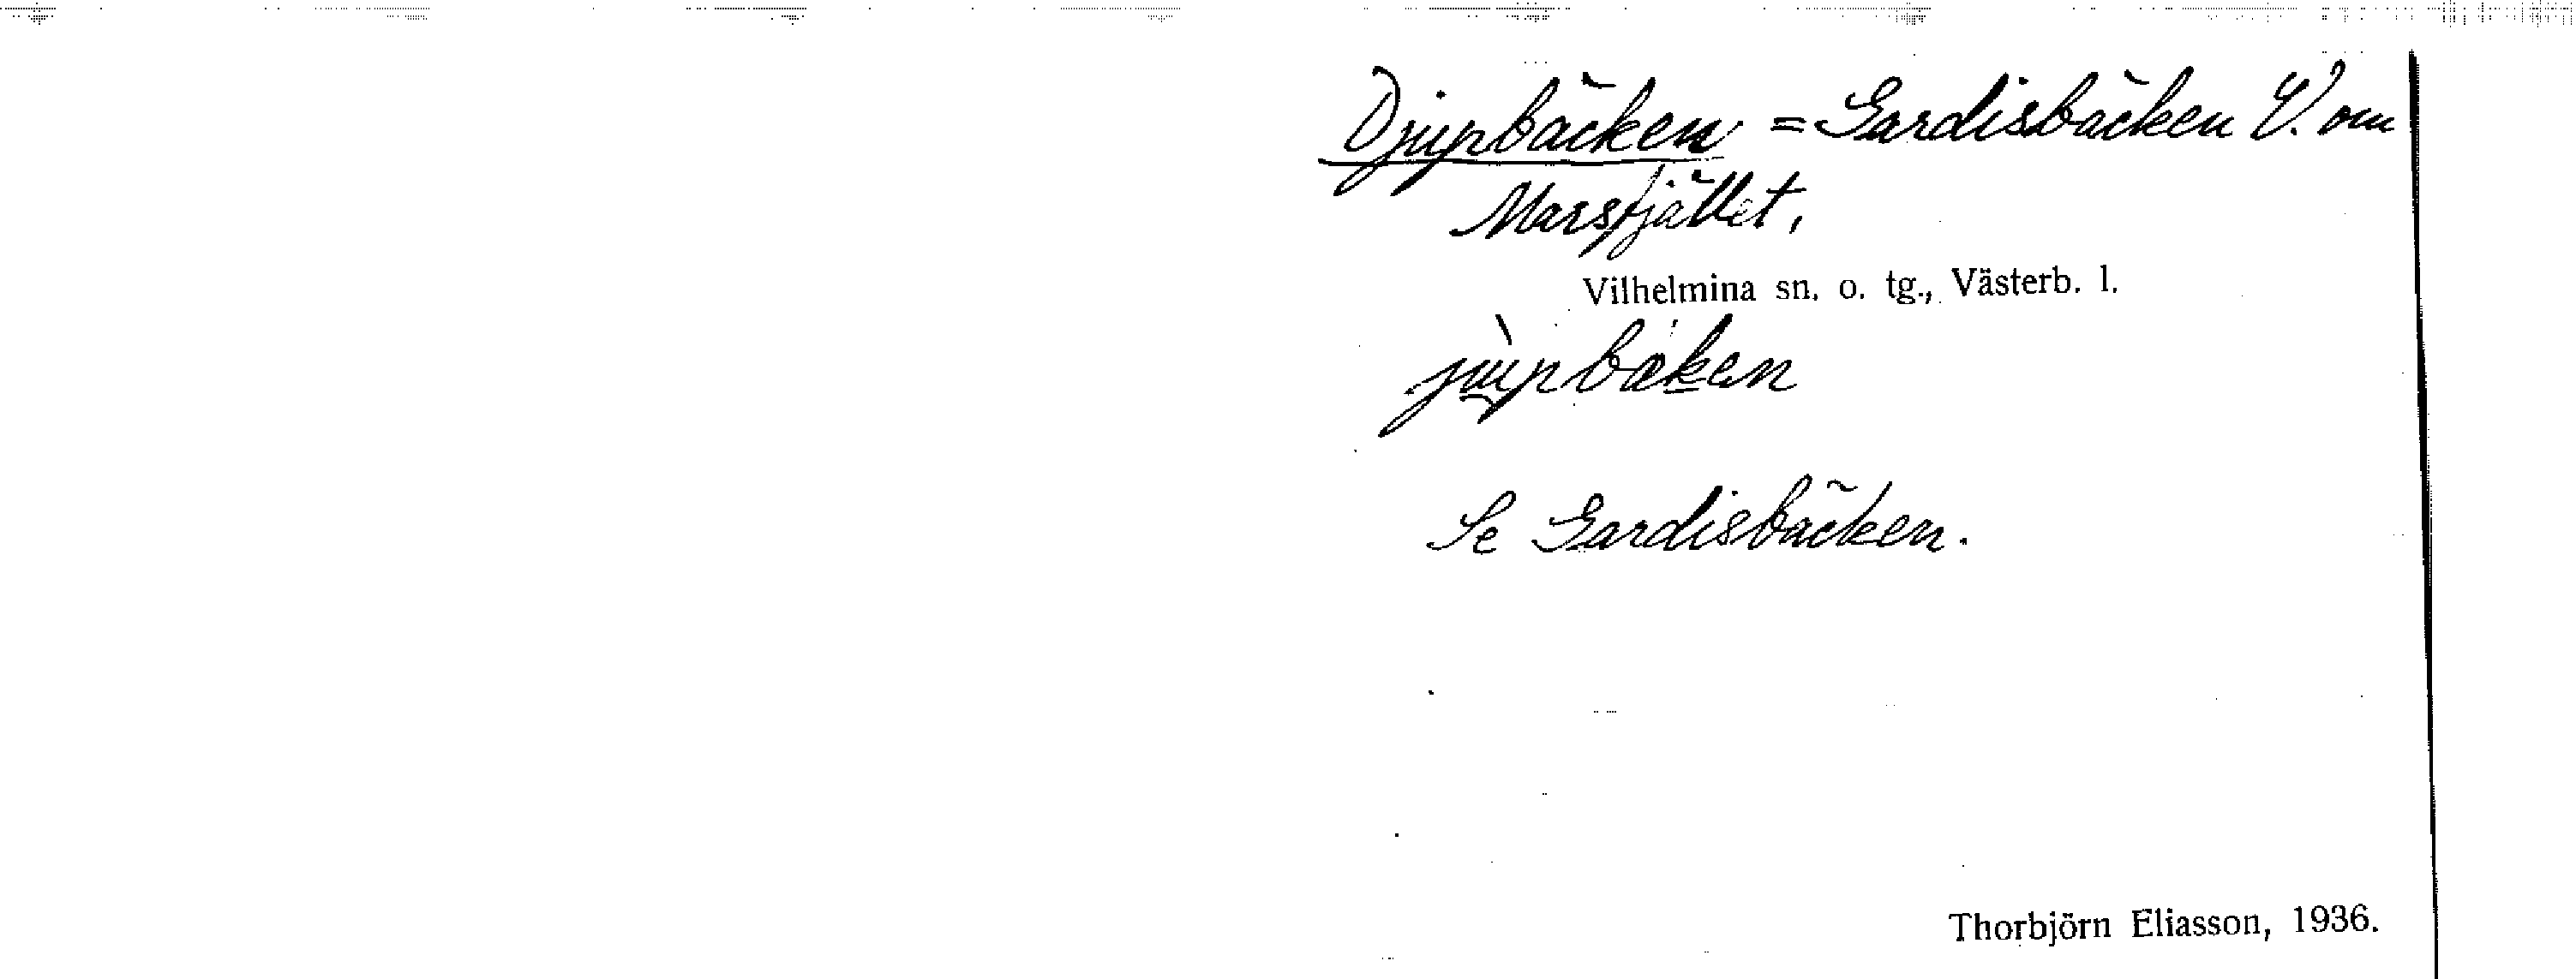 Djupbäcken = Gardisbäcken V. om
Marsfjället,
Vilhelmina sn. o. tg., Västerb. l.
jùpbæken
Se Gardisbäcken.
Thorbjörn Eliasson, 1936.